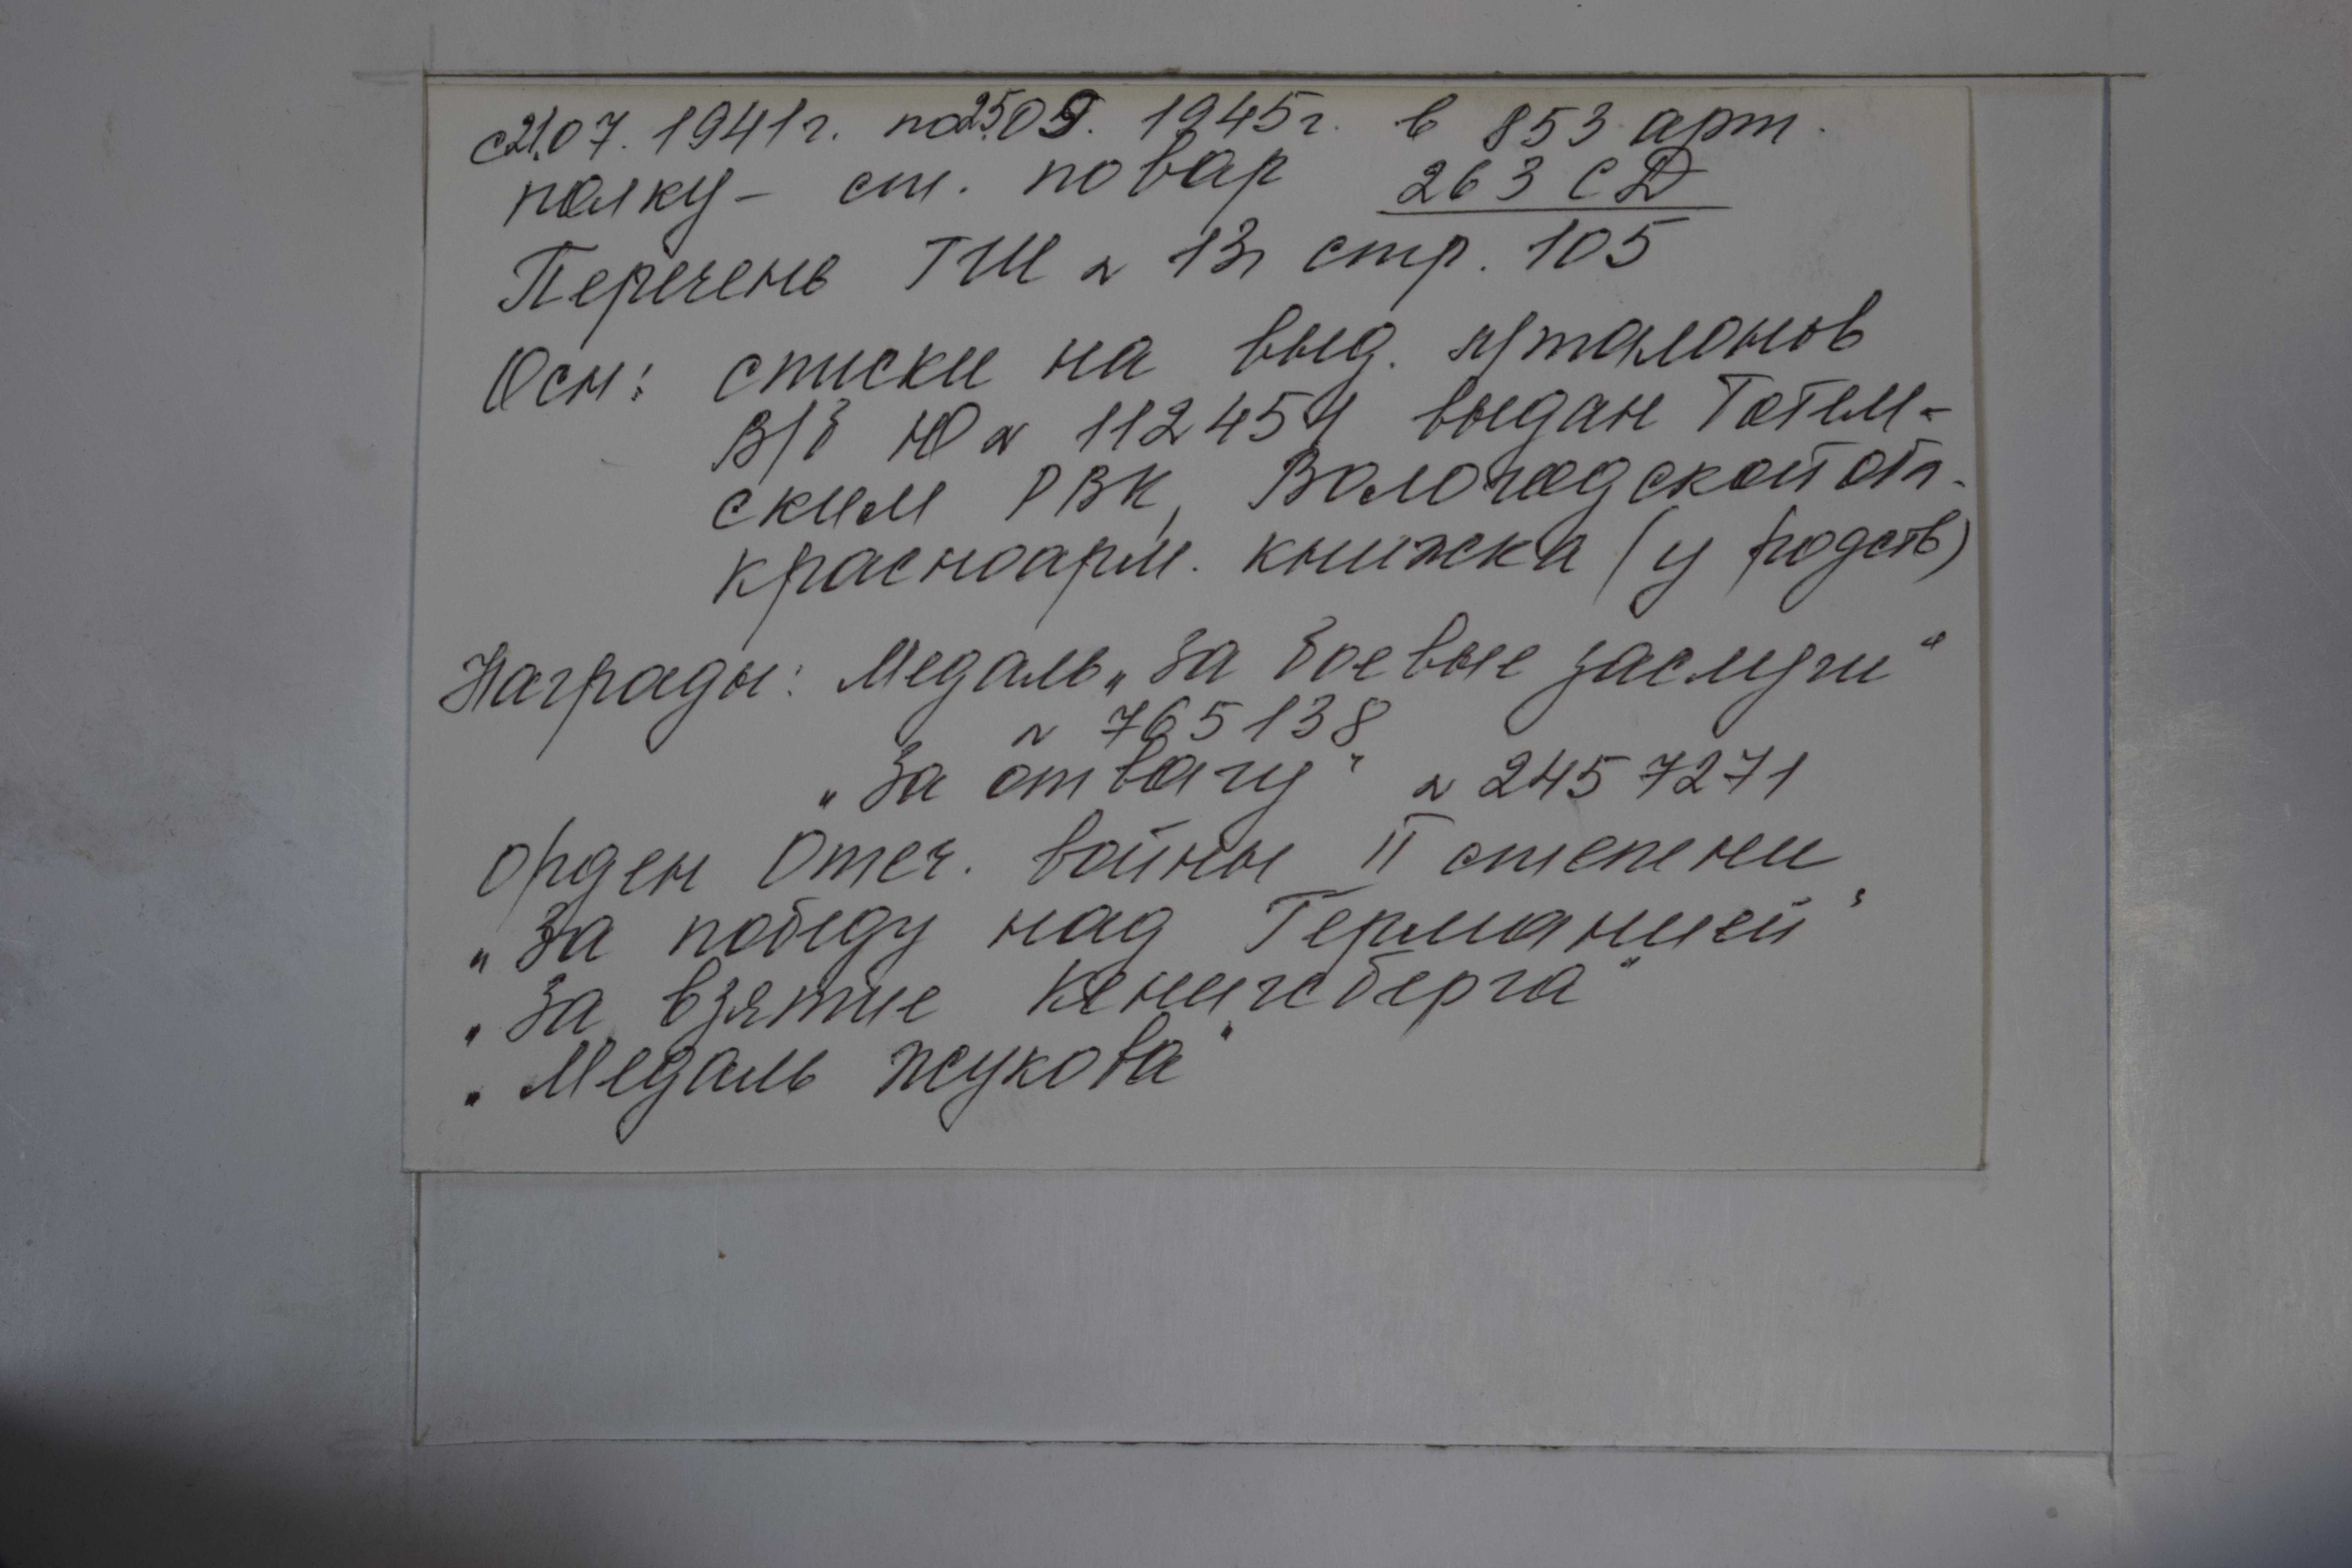 с 21.07.1941г. по 25.09.1945г. в 853 арт.
полку – ст. повар 263 СД
Перечень ГШ № 13, стр. 105
Осн: списки на выд. х/талонов
В/б Ю № 112454 выдан Тотем-
ским РВК, Вологодской обл.
красноарм. книжка (у родств)
Награды: Медаль „За боевые заслуги“
№ 765138
„За отвагу“ № 2457271
Орден Отеч. войны II степени
„За победу над Германией“
„За взятие Кенигсберга“
„Медаль Жукова“